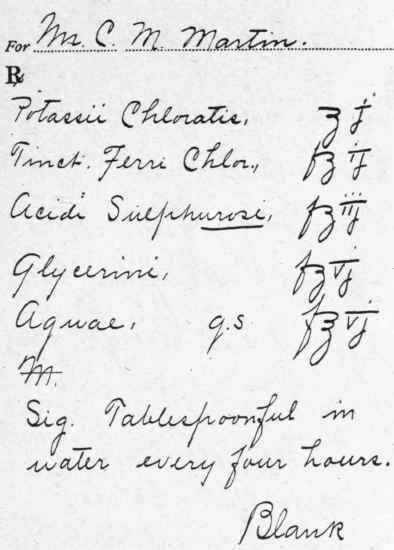 For Mr. C. M. Martin.
℞
Potassii Chloratis, ʒ j
Tinct. Ferri Chlor., fʒ ij
Acidi Sulphurosi, fʒ iij
Glycerini, fʒ vj
Aquae, q.s f℥ vj
M.
Sig. Tablespoonful in
water every four hours.
Blank